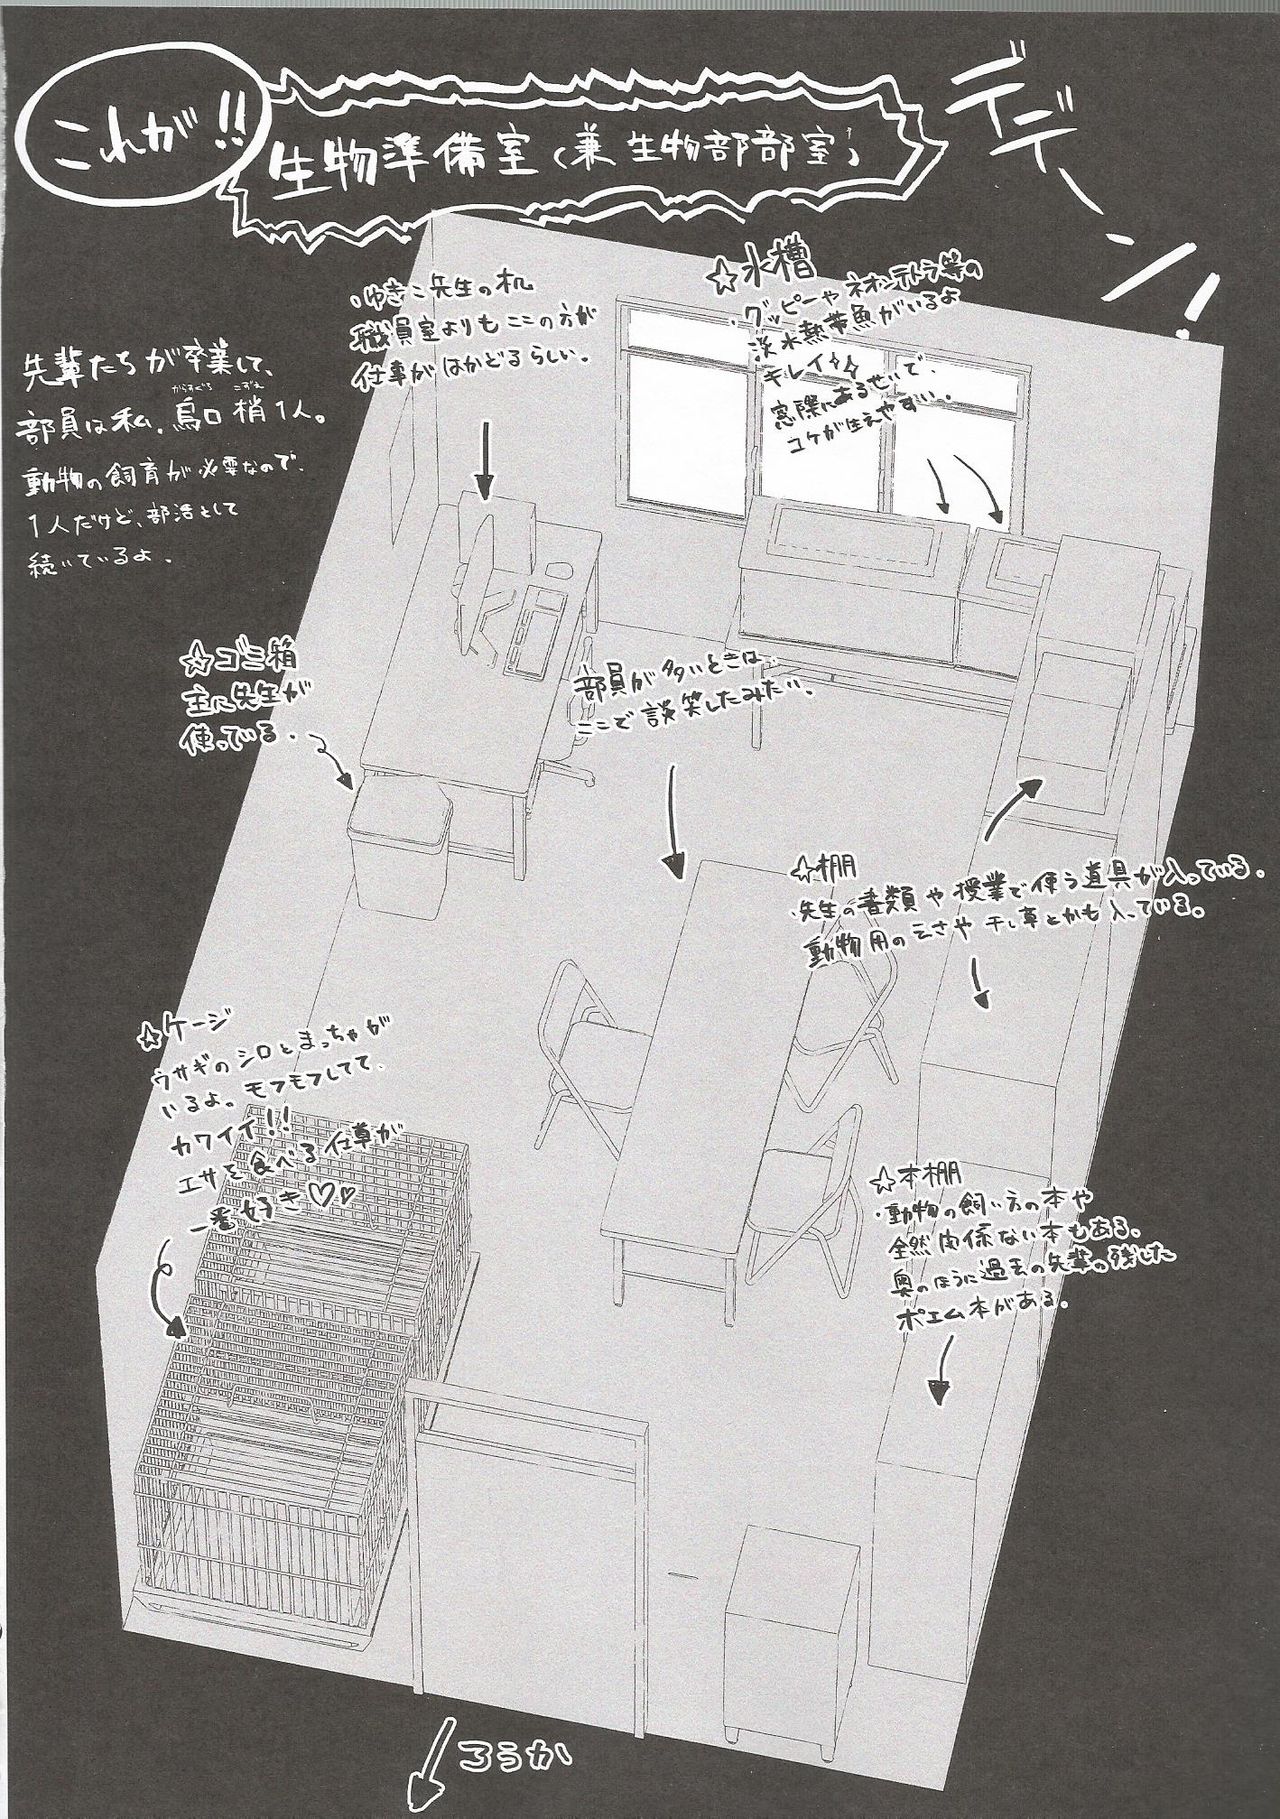 これが!!
生物準備室(兼 生物部部室)
デデーン!
先輩たちが卒業して、
部員は私、烏口 梢1人。
からすぐち こずえ
動物の飼育が必要なので、
1人だけど、部活として
続いているよ。
・ゆきこ先生の机
職員室よりもここの方が
仕事がはかどるらしい。
☆水槽
・グッピーやネオンテトラ等の
淡水熱帯魚がいるよ
キレイ
窓際にあるせいで、
コケが生えやすい。
☆ゴミ箱
主に先生が
使っている。
部員が多いときは
ここで談笑したみたい。
☆棚
・先生の書類や授業で使う道具が入っている。
動物用のえさや干し草とかも入っている。
☆ケージ
ウサギのシロとまっちゃが
いるよ。モフモフしてて、
カワイイ!!
エサを食べる仕草が
一番好き♡♡
☆本棚
・動物の飼い方の本や
全然関係ない本もある。
奥のほうに過去の先輩の残した
ポエム本がある。
ろうか